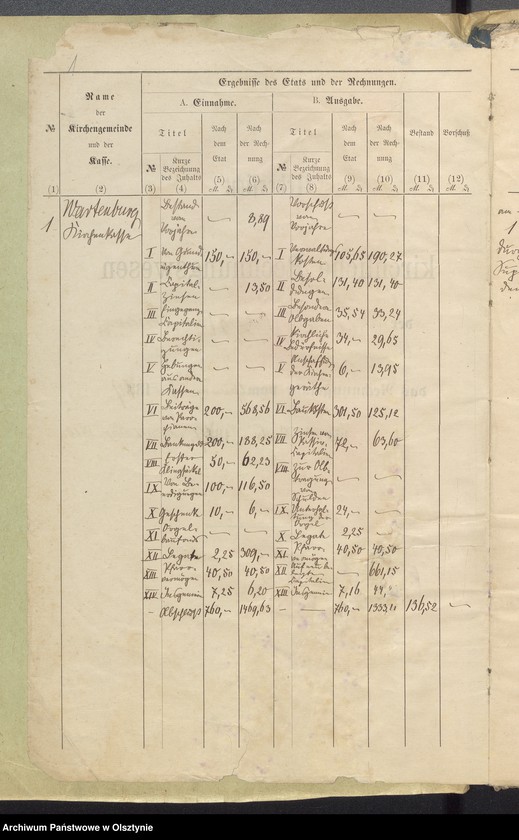 1
Ergebnisse des Etats und der Rechnungen.
Name
der
Kirchengemeinde
und der
Kasse.
A. Einnahme.
B. Ausgabe.
№
Titel
Nach
dem
Etat
Nach
der Rech-
nung
Titel
Nach
dem
Etat
Nach
der Rech-
nung
Bestand
Vorschuß
№
Kurze
Bezeichnung
des Inhalts
№
Kurze
Bezeichnung
des Inhalts
(1) (2) (3) (4) (5) (6) (7) (8) (9) (10) (11) (12)
1 Wartenburg
Kirchenkasse
Bestand
vom
Vorjahre — 3,89
Vorschuss
vom
Vorjahre — —
I 150,— 150,— I Verwaltungs
Kosten 105,65 190,27
II Capital-
zinsen — 13,50 II Besol-
dungen 131,40 131,40
III Capitalien — — III Besondere
Abgaben 35,54 33,24
IV Berechti-
gungen — — IV Kirchliche
Bedürfnisse 34,— 29,65
V Hebungen
aus andern
Kassen — — V der Kirchen-
geräthe 6,— 13,95
VI Beiträge 200,— 568,56 VI Baukosten 301,50 125,12
VII 200,— 188,25 VII Zinsen von
Passiv-
Capitalien 72,— 63,60
VIII 50,— 62,23 VIII Zur Ab-
tragung
von
Schulden — —
IX Von Be-
erdigungen 100,— 116,50
X Geschenk 10,— 6,— IX Unterhal-
tung der
Orgel 24,— —
XI Orgel-
baufonds — — X Legate 2,25
XII Legate 2,25 309,— XI Pfarr-
vermögen 40,50 40,50
XIII Pfarr-
vermögen 40,50 40,50 XII Capitalien — 661,15
XIV Insgemein 7,25 6,20 XIII Insgemein 7,16 44,
— Abschluss 760,— 1469,63 — — 760,— 1333,11 136,52 —
Archiwum Państwowe w Olsztynie